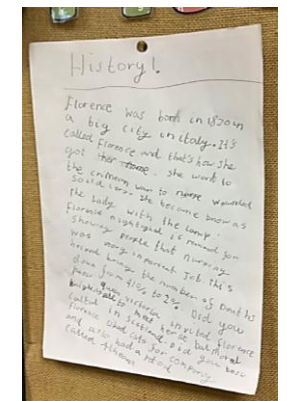 History!
Florence was born in 1820 in
a big city in italy. It's
called Florence and that's how she
got her name. she went to
the crimean war to nurse wounded
she became know as
the lady with the lamp.
Florence nightingale is
showing people that nursing
was very important Job. This
helped bring the number of deaths
down from 41% to 2%. Did you
Queen Victoria invited Florence
to meet her at balmoral
in Scotland. Did you know
Florence liked cats for company
and also had a
called Athena